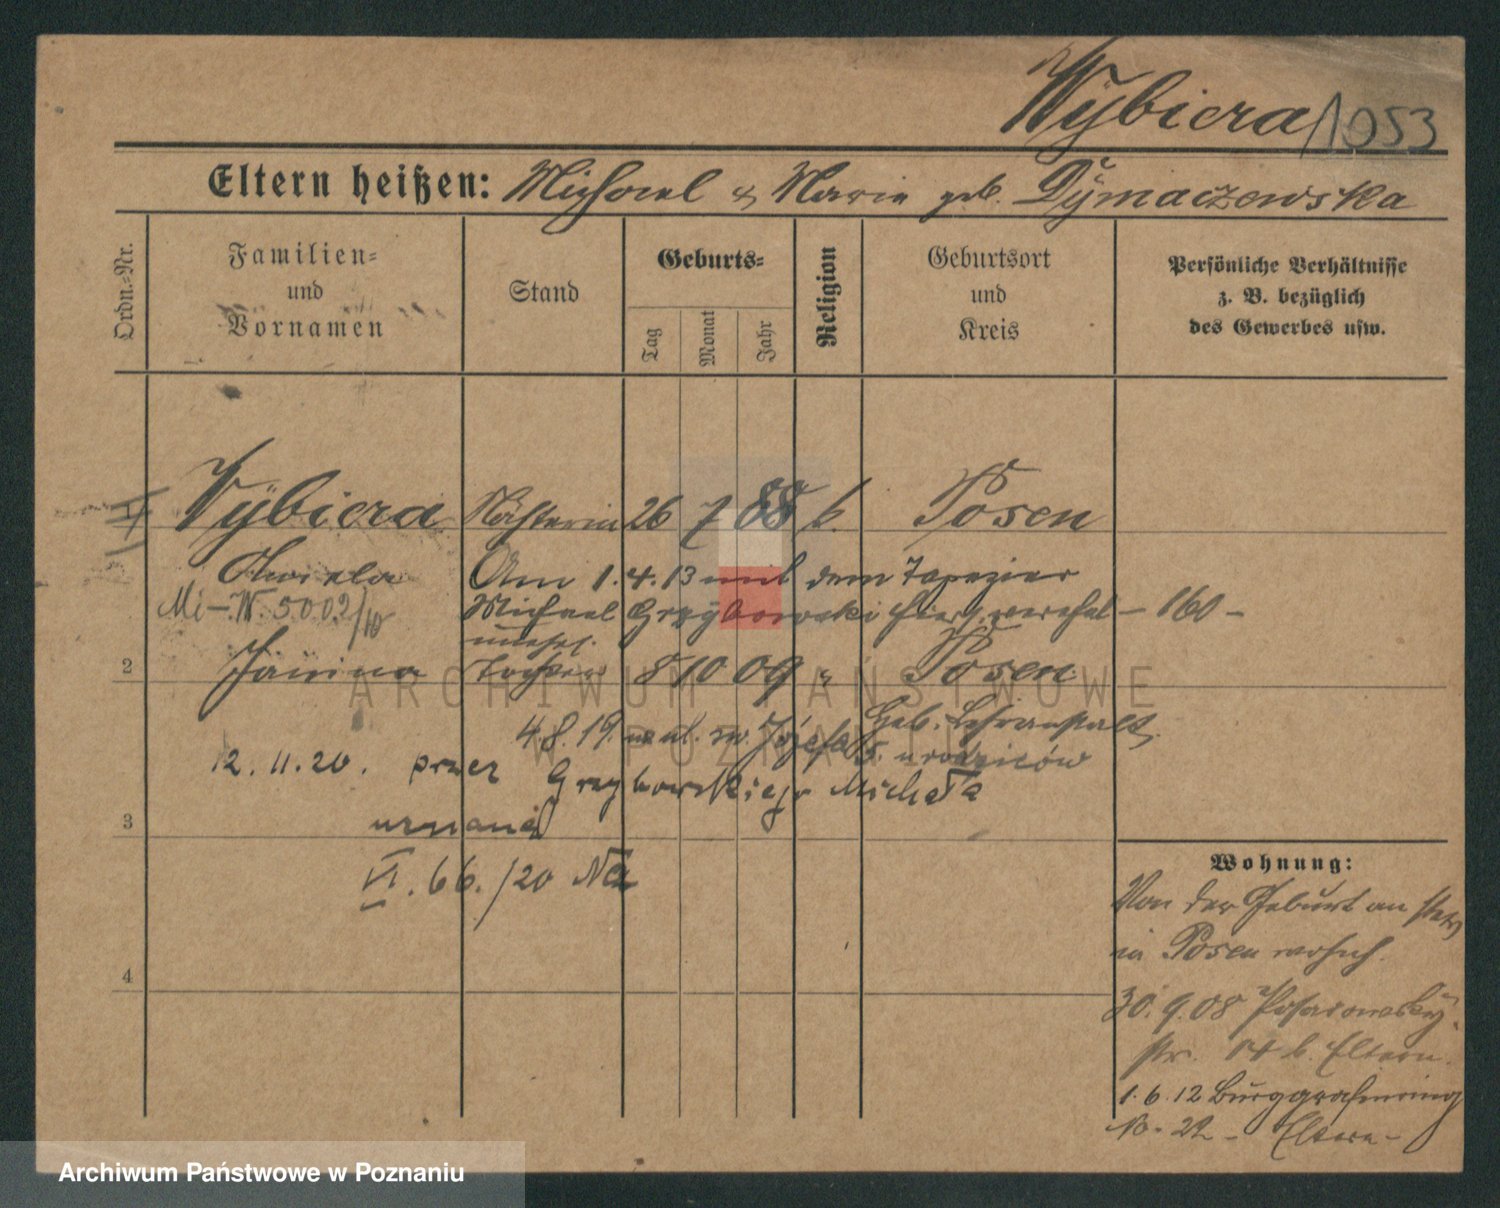 Wybiera 1053
Eltern heißen: Michael & Marie geb. Dymaczewska
Ordn.-Nr.
Familien- und Vornamen
Stand
Geburts-
Tag
Monat
Jahr
Religion
Geburtsort und Kreis
Persönliche Verhältnisse
z. B. bezüglich
des Gewerbes usw.
1 Wybiera Nähterin 26 7 88 k. Posen
Am 1.4.13 mit dem Tapezier
Mi-W. 5002/10
Michael Grzybowski hier verehel - 160 -
unehel.
2 Janina Tochter 8 10 09 " Posen
Geb. Lehranstalt
4.8.19. ul. św. Józefa 5. u rodziców
12.11.20. przez Grzybowskiego Michała
3 uznana
VI. 66./20
4
Wohnung:
Von der Geburt an stets
in Posen wohnh.
30.9.08
str. 14 b. Eltern.
1.6.12 Burggrafenring
No. 22 - Eltern -
ARCHIWUM PAŃSTWOWE
W POZNANIU
Archiwum Państwowe w Poznaniu